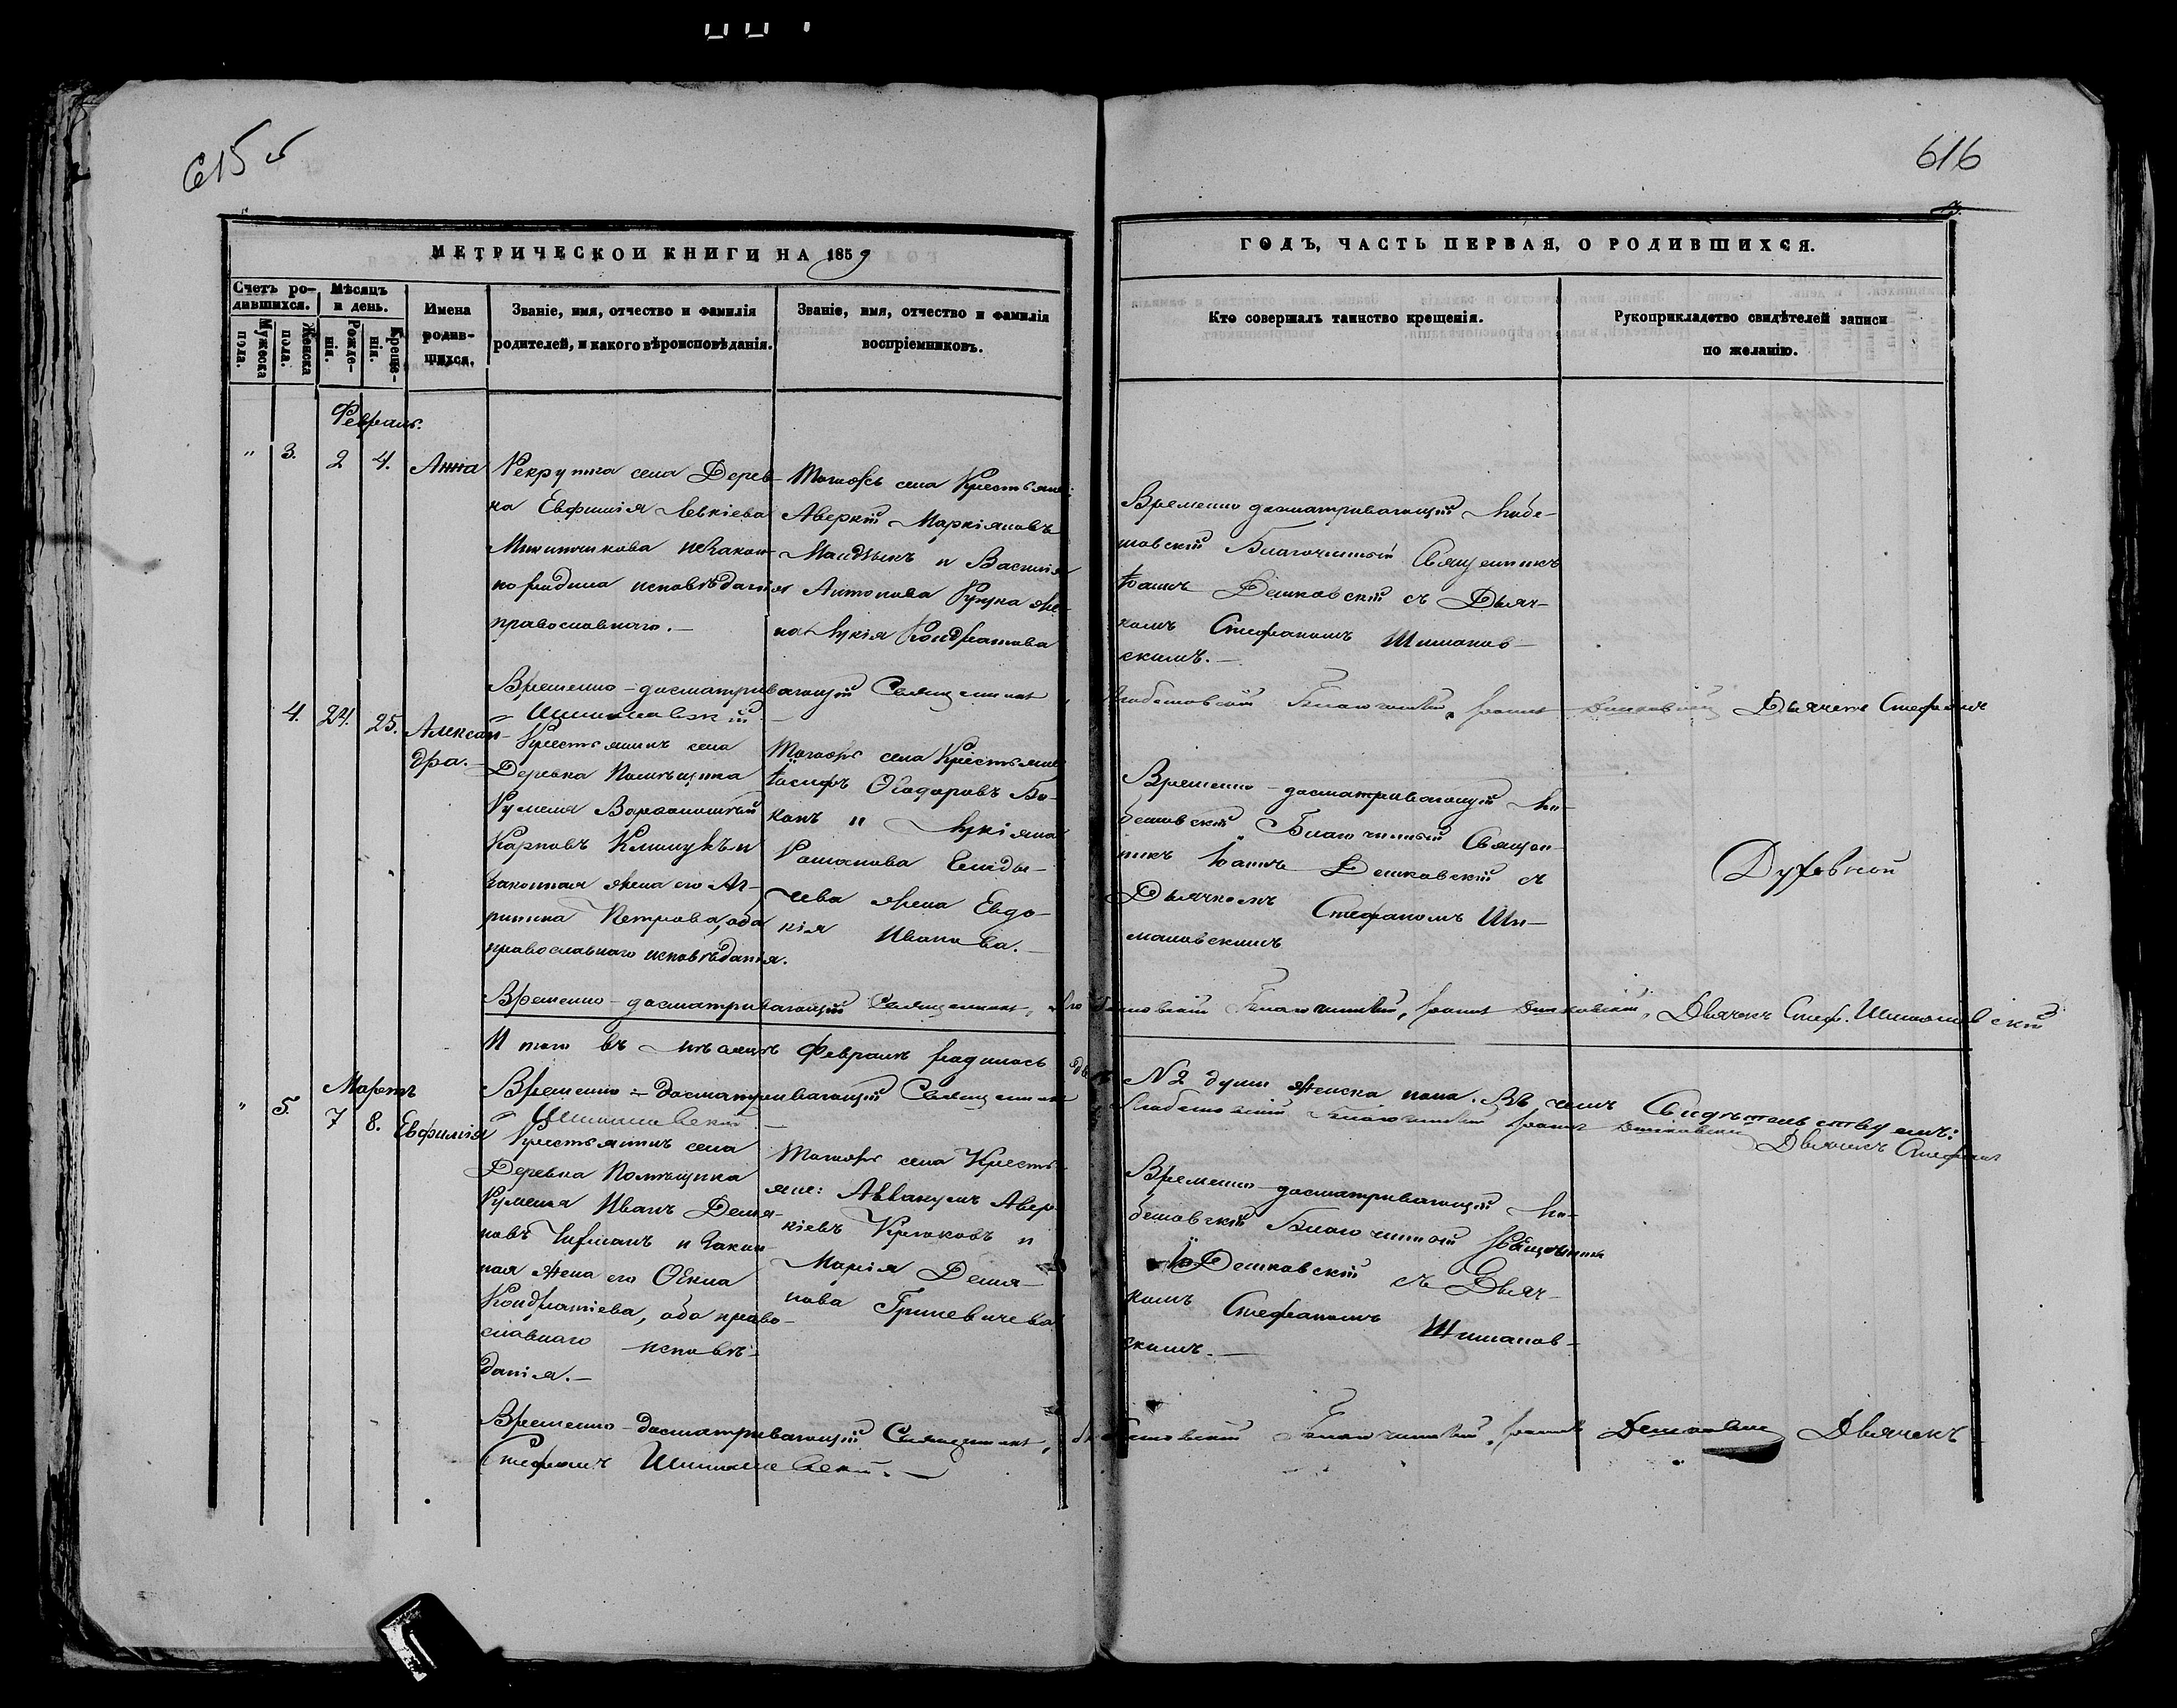 615 об
616
3.
МЕТРИЧЕСКОЙ КНИГИ НА 1859
ГОДЪ, ЧАСТЬ ПЕРВАЯ, О РОДИВШИХСЯ.
Счетъ ро-
дившихся.
Мужеска
пола.
Женска
пола.
Мѣсяцъ
и день.
Рожде-
нія.
Креще-
нія.
Имена
родив-
шихся.
Званіе, имя, отчество и фамилія
родителей, и какого вѣроисповѣданія.
Званіе, имя, отчество и фамилія
воспріемниковъ.
Кто совершалъ таинство крещенія.
Рукоприкладство свидѣтелей записи
по желанію.
Февраль.
" 3. 2 4. Анна
Рекрутка села Дерев-
ка Евфимія Левкіева
незакон-
но рождена исповѣданія
православнаго.—
Тогожъ села Крестьяне:
Аверкій Маркіяновъ
и Василія
Антонова же-
на Лукія Кондратова
Временно досматривающій Любе-
шовскій Благочинный Священникъ
Іоаннъ Дешковскій съ Дьяч-
комъ Стефаномъ Шиманов-
скимъ.—
Временно-досматривающій Священникъ, Любешовскій Благочинный, Іоаннъ Дешковскій Дьячекъ Стефанъ
Шимановскій.—
4. 24. 25. Алексан-
дра.—
Крестьянинъ села
Деревка Помѣщика
Румеля
Карповъ Климукъ и
законная жена его Аг-
рипина Петрова, оба
православнаго исповѣданія.
Тогожъ села Крестьяне
Іосифъ Ѳеодоровъ Бо-
канъ и Лукіяна
Романова
чева жена Евдо-
кія Иванова.—
Временно-досматривающій Лю-
бешовскій Благочинный Священ-
никъ Іоаннъ Дешковскій съ
Дьячкомъ Стефаномъ Ши-
мановскимъ
Духовной
Временно-досматривающій Священникъ, Любешовскій Благочинный, Іоаннъ Дешковскій, Дьячекъ Стеф. Шимановскій
И того въ мѣсяцѣ Февралѣ родилось двѣ № 2 души женска пола. Въ чемъ Свидѣтельствуемъ:
Временно-досматривающій Священникъ Любешовскій Благочинный Іоаннъ Дешковскій Дьячекъ Стефанъ
Шимановскій.—
Мартъ
" 5. 7 8. Евфимія
Крестьянинъ села
Деревка Помѣщика
Румеля Иванъ Демья-
новъ и закон-
ная жена его Ѳекла
Кондратіева, оба право-
славнаго исповѣ-
данія.—
Тогожъ села Кресть-
яне: Аввакумъ Авер-
кіевъ Крюковъ и
Марія Демья-
нова Гриневичева
Временно-досматривающій Лю-
бешовскій Благочинный Священникъ
Іо. Дешковскій съ Дьяч-
комъ Стефаномъ Шиманов-
скимъ.—
Временно-досматривающій Священникъ, Любешовскій Благочинный, Іоаннъ Дешковскій Дьячекъ
Стефанъ Шимановскій.—